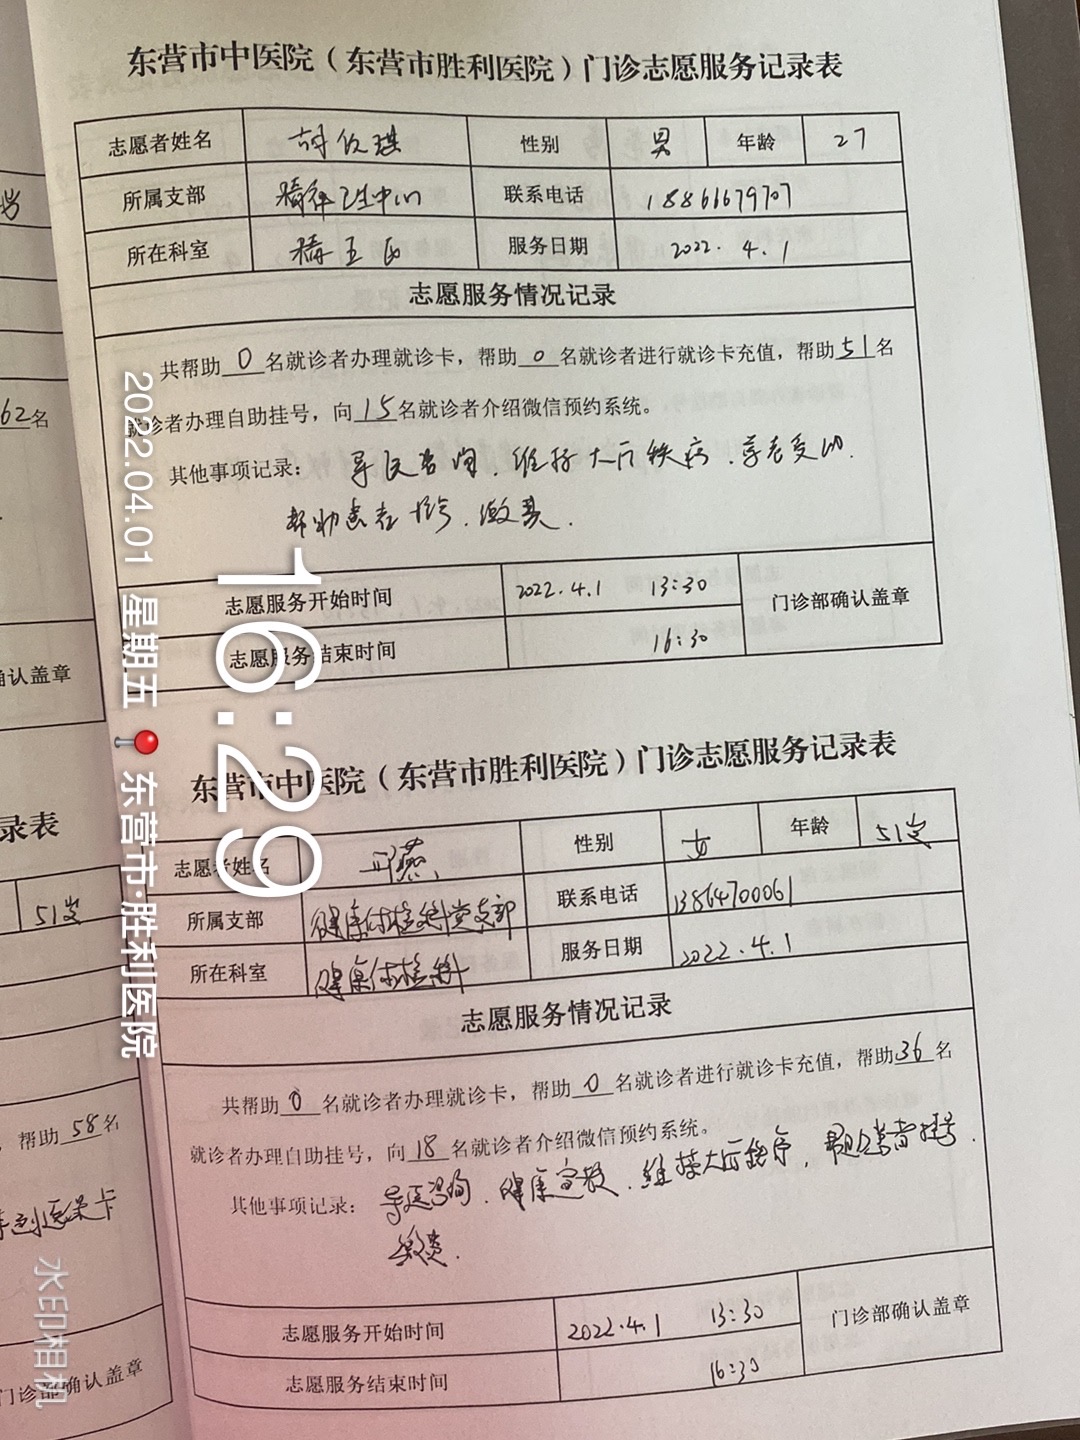 东营市中医院（东营市胜利医院）门诊志愿服务记录表
志愿者姓名 性别 男 年龄 27
所属支部 精神卫生中心 联系电话 18861679707
所在科室 服务日期 2022.4.1
志愿服务情况记录
共帮助0名就诊者办理就诊卡，帮助0名就诊者进行就诊卡充值，帮助51名
就诊者办理自助挂号，向15名就诊者介绍微信预约系统。
其他事项记录： 导医咨询、维持大厅秩序、
帮助患者 挂号、缴费.
志愿服务开始时间 2022.4.1 13:30 门诊部确认盖章
志愿服务结束时间 16:30
东营市中医院（东营市胜利医院）门诊志愿服务记录表
志愿者姓名 燕 性别 女 年龄 51岁
所属支部 健康体检科党支部 联系电话 13864700061
所在科室 健康体检科 服务日期 2022.4.1
志愿服务情况记录
共帮助0名就诊者办理就诊卡，帮助0名就诊者进行就诊卡充值，帮助36名
就诊者办理自助挂号，向18名就诊者介绍微信预约系统。
其他事项记录： 导医咨询、健康宣教、维持大厅秩序，帮助患者挂号.
缴费.
志愿服务开始时间 2022.4.1 13:30 门诊部确认盖章
志愿服务结束时间 16:30
62名
确认盖章
录表
51岁
，帮助58名
医保卡
门诊部确认盖章
16:29
2022.04.01 星期五 📍 东营市·胜利医院
水印相机